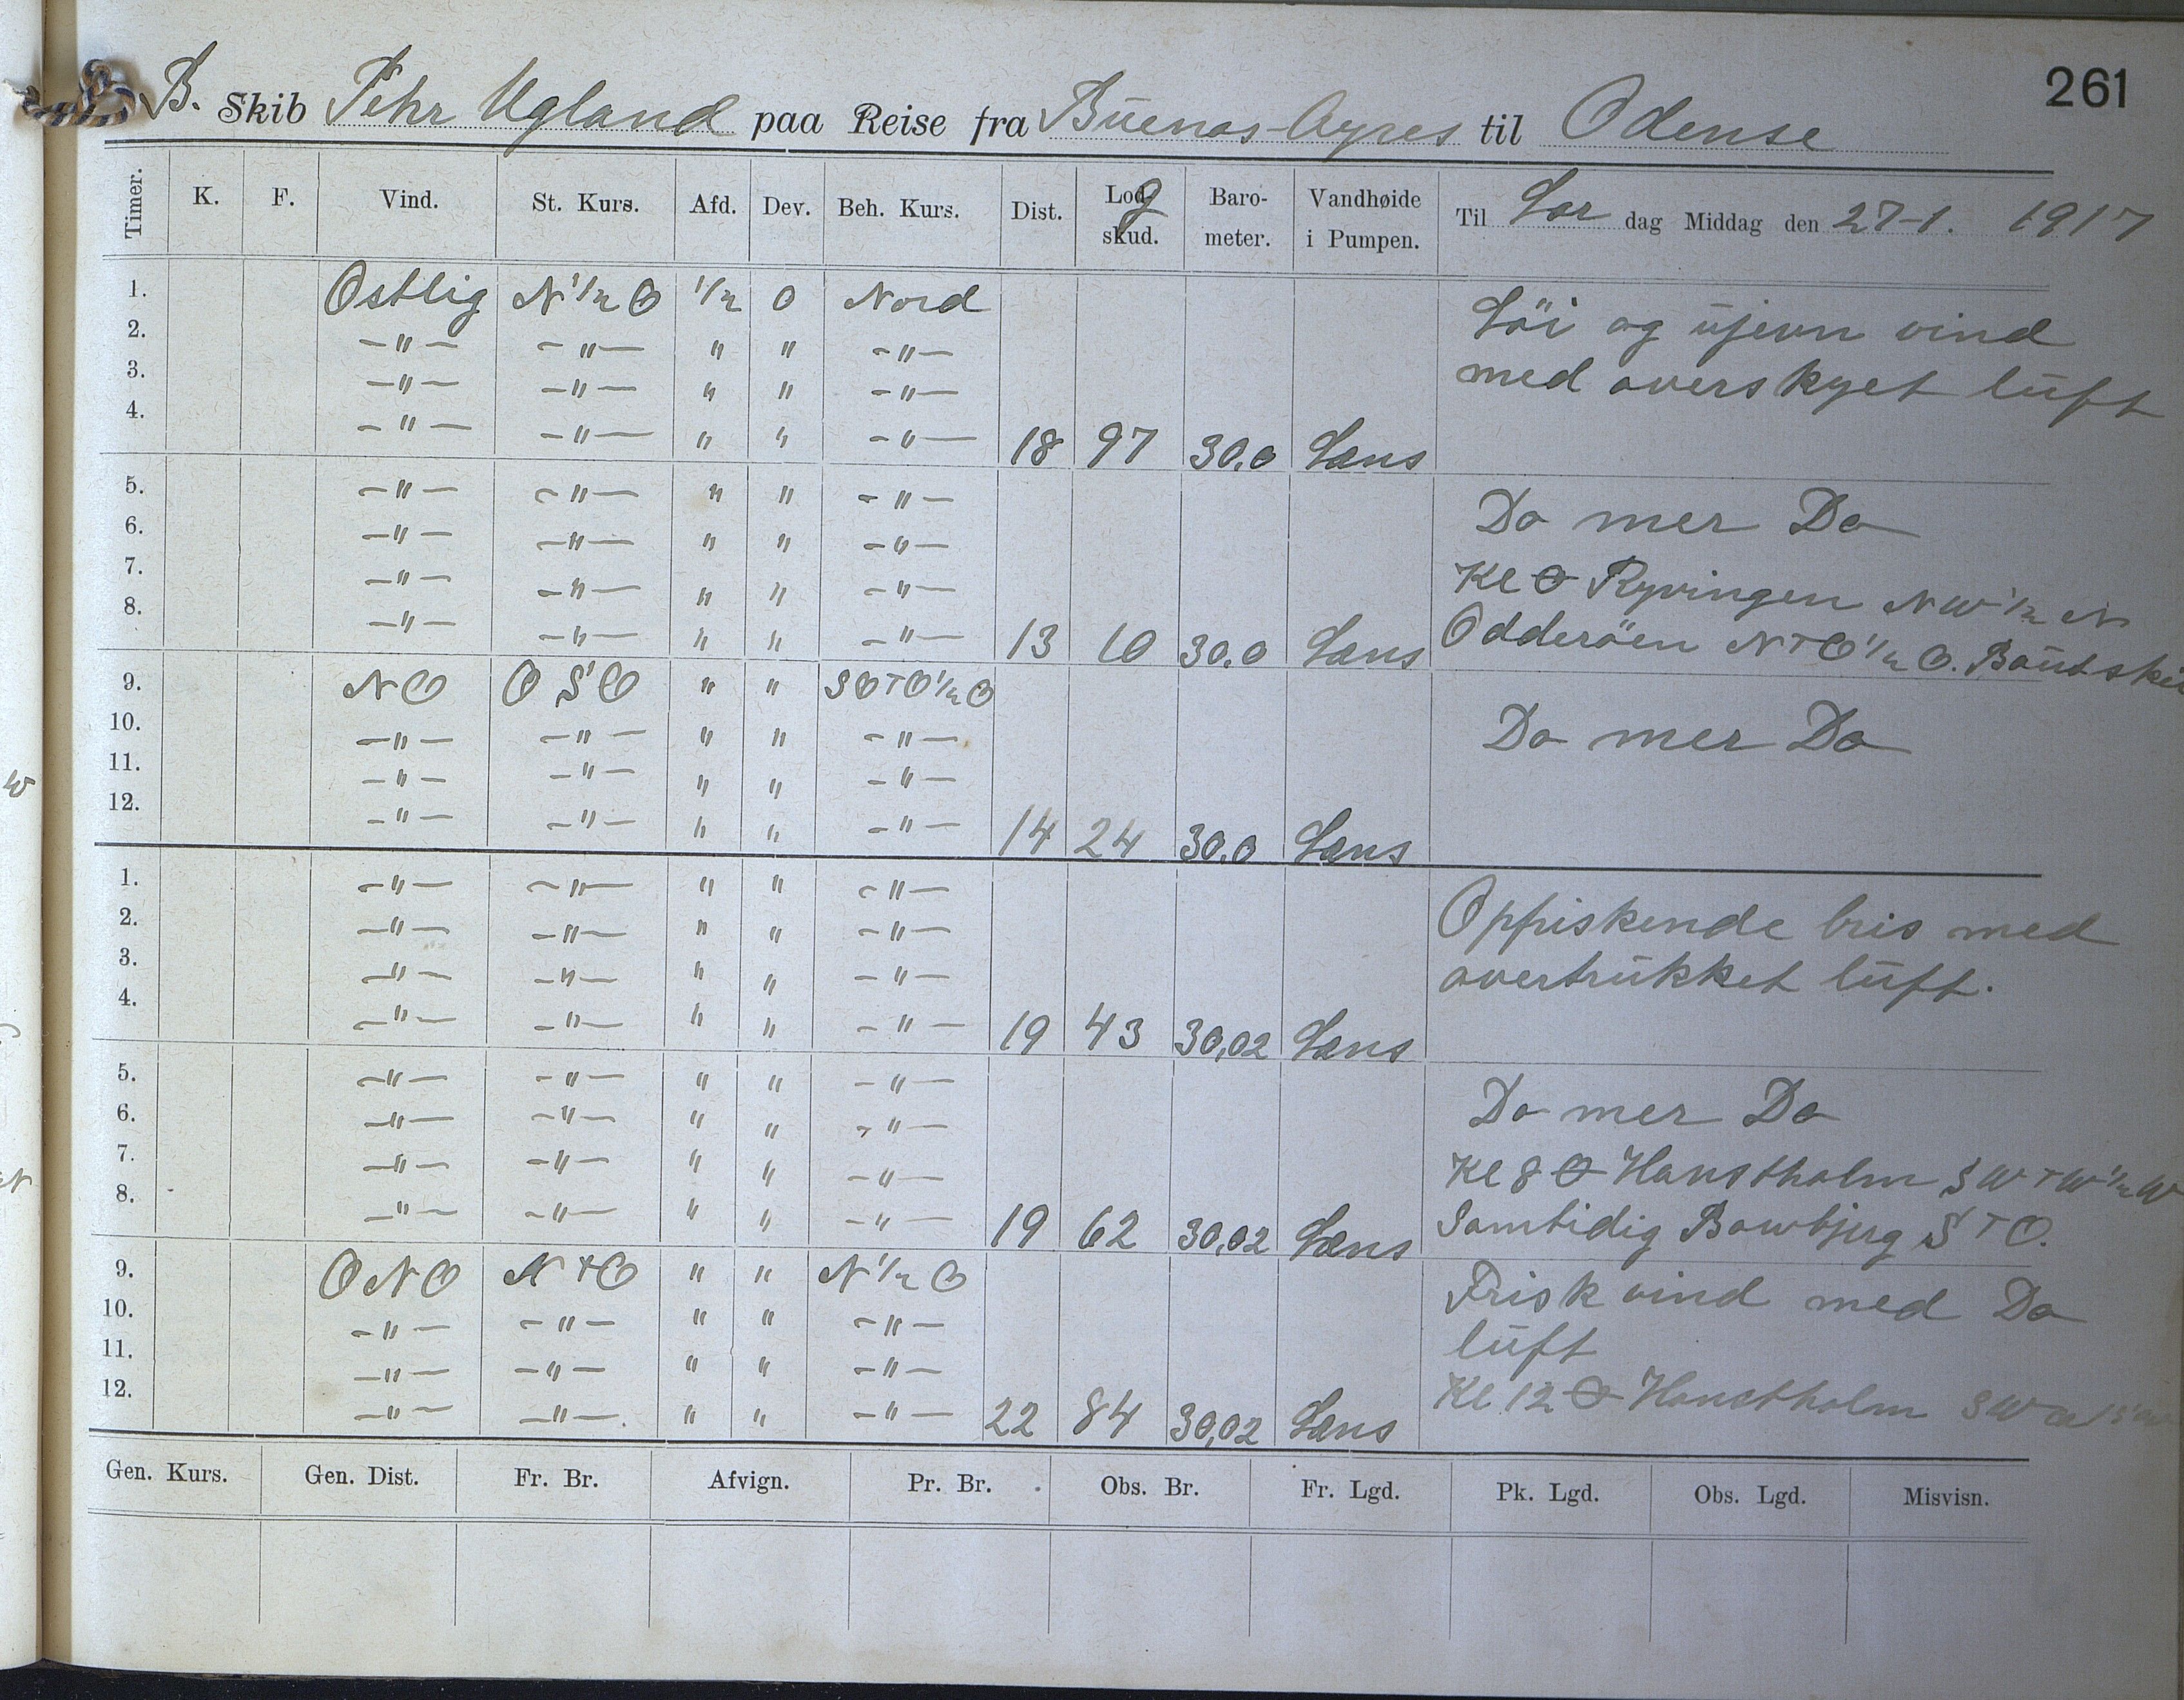 261
B. Skib Pehr Ugland paa Reise fra Buenos-Ayres til Odense
Timer. K. F. Vind. St. Kurs. Afd. Dev. Beh. Kurs. Dist. Logskud. Barometer. Vandhøide i Pumpen. Til Lør dag Middag den 27-1. 1917
1. Ostlig N 1/2 O 1/2 0 Nord Löi og ujevn vind
2. -"- -"- " " -"-
3. -"- -"- " " -"- med overskyet luft
4. -"- -"- " " -"- 18 97 30.0 Læns
5. -"- -"- " " -"- Do mer Do
6. -"- -"- " " -"-
7. -"- -"- " " -"- Kl Ryvingen NW 1/2 N
8. -"- -"- " " -"- 13 10 30.0 Læns Odderöen NTO 1/2 O.
9. NO OSO " " SOTO 1/2 O
10. -"- -"- " " -"- Do mer Do
11. -"- -"- " " -"-
12. -"- -"- " " -"- 14 24 30.0 Læns
1. -"- -"- " " -"- Opfriskende bris med
2. -"- -"- " " -"-
3. -"- -"- " " -"- overtrukket luft.
4. -"- -"- " " -"- 19 43 30,02 Læns
5. -"- -"- " " -"- Do mer Do
6. -"- -"- " " -"-
7. -"- -"- " " -"- Kl 8 Hanstholm SWTW 1/2 W
8. -"- -"- " " -"- 19 62 30,02 Læns Samtidig Bowbjerg STO.
9. ONO NTO " " N 1/2 O Frisk vind med Do
10. -"- -"- " " -"- luft
11. -"- -"- " " -"-
12. -"- -"- " " -"- 22 84 30,02 Læns Kl 12 Hanstholm
Gen. Kurs. Gen. Dist. Fr. Br. Afvign. Pr. Br. Obs. Br. Fr. Lgd. Pk. Lgd. Obs. Lgd. Misvisn.